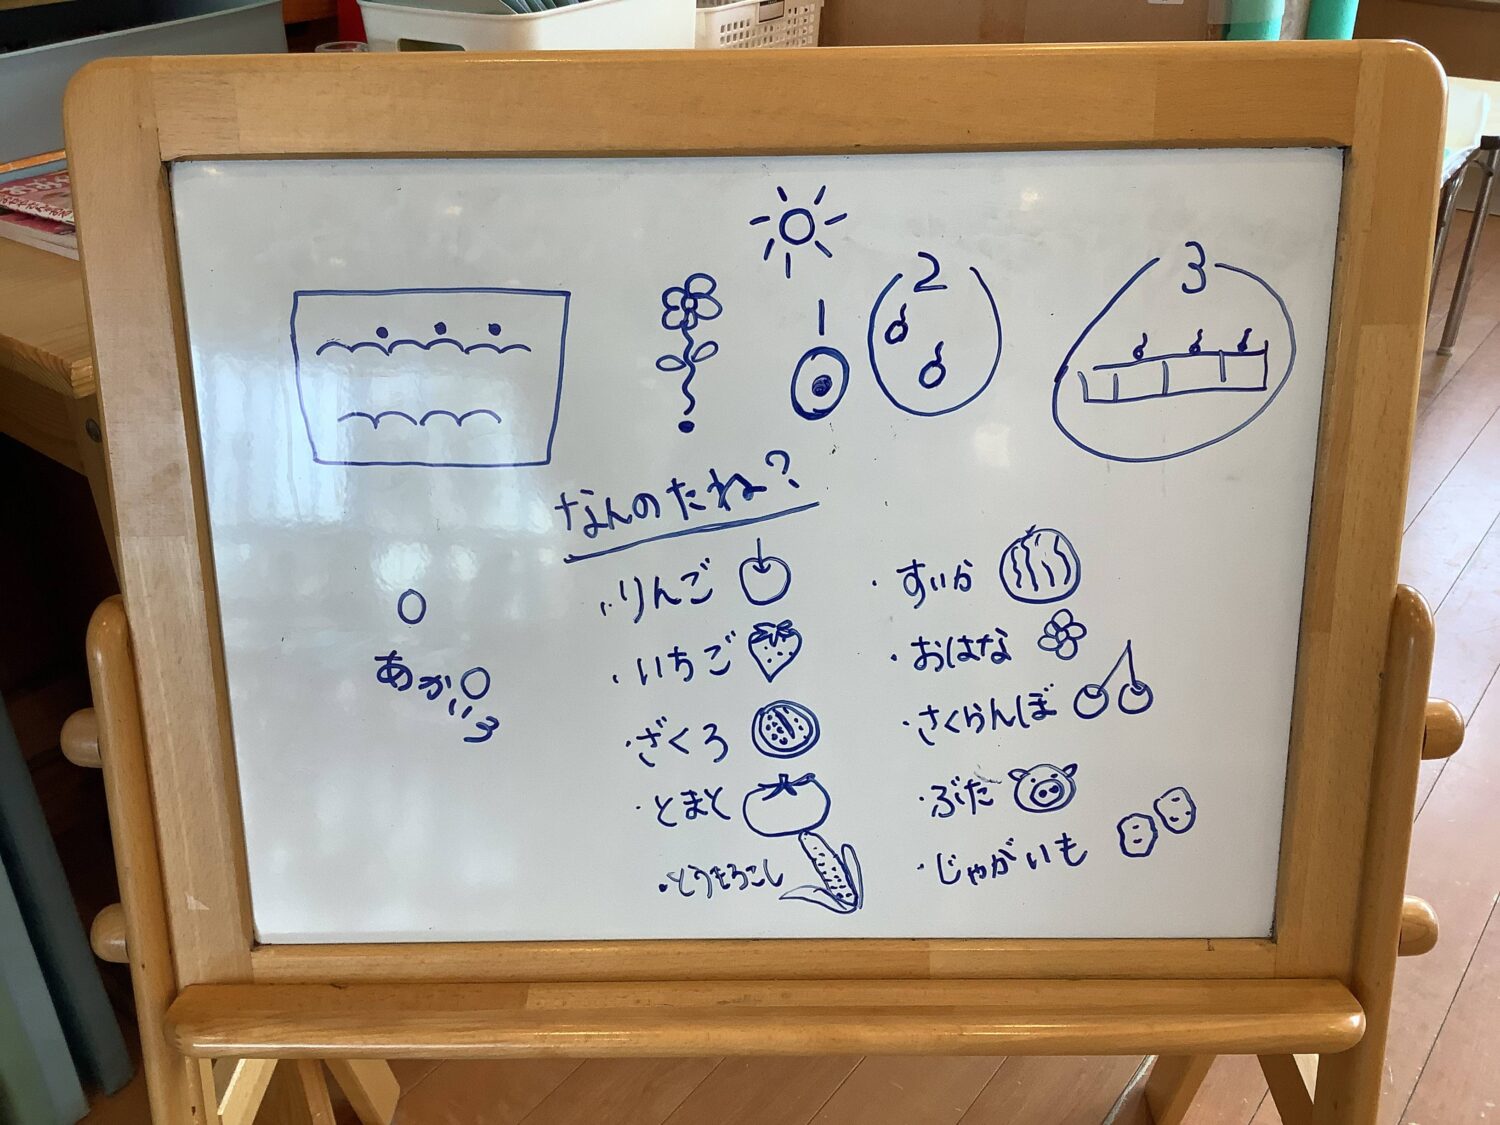 1
2
3
なんのたね?
・りんご
・いちご
・ざくろ
・とまと
・とうもろこし
・すいか
・おはな
・さくらんぼ
・ぶた
・じゃがいも
あかいろ